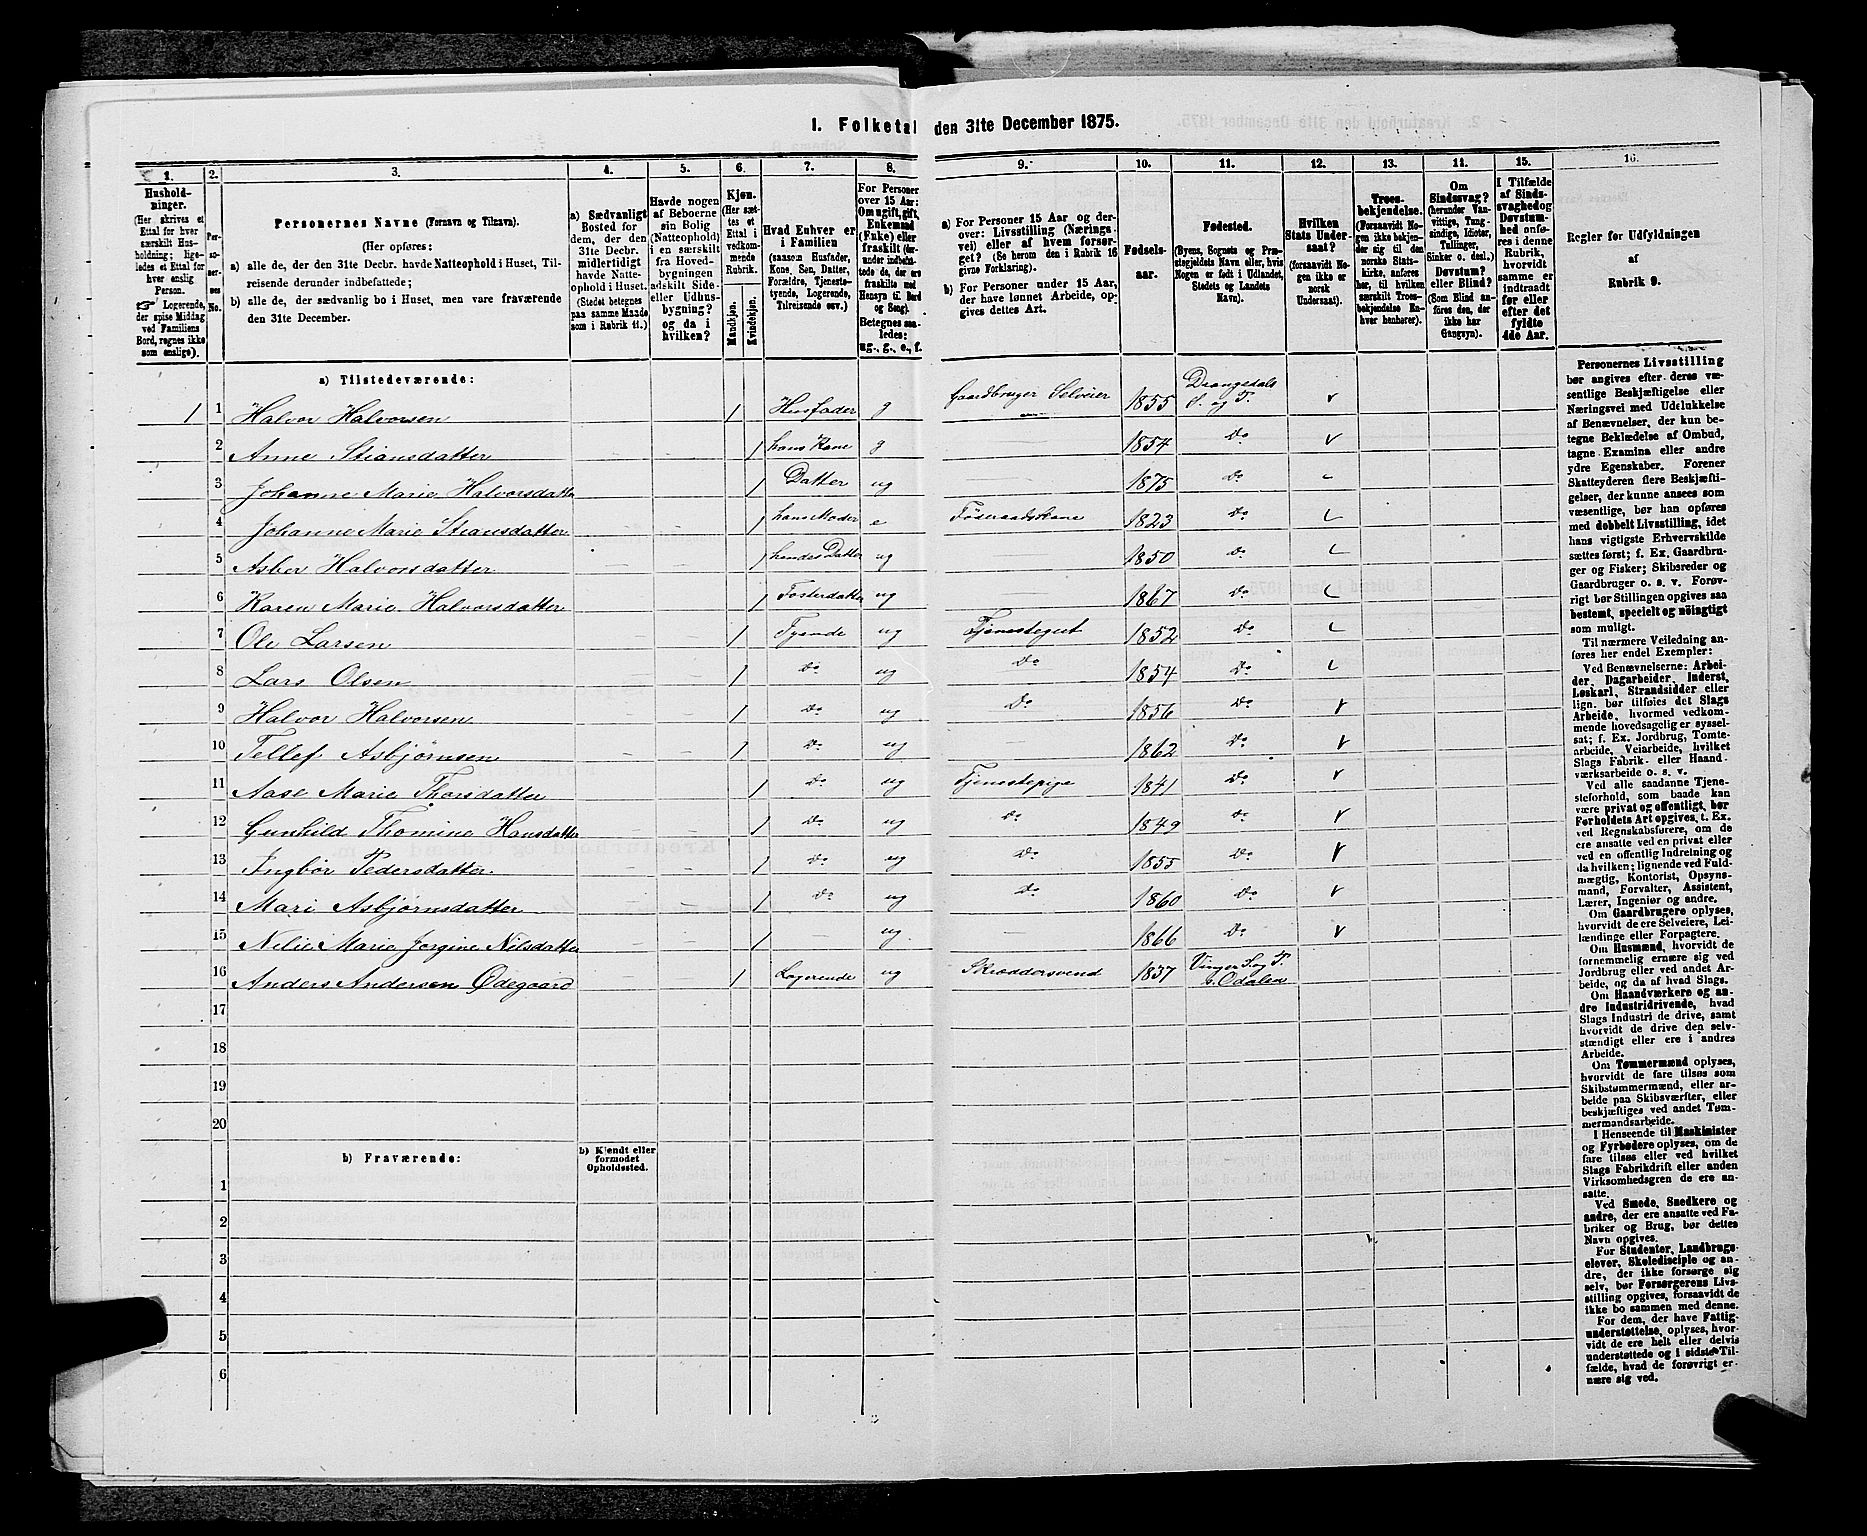 1. Folketal den 31te December 1875.
1. 2. 3. 4. 5. 6. 7. 8. 9. 10. 11. 12. 13. 14. 15. 16.
Hushold-
ninger.
(Her skrives et
Ettal for hver
særskilt Hus-
holdning; lige-
ledes et Ettal for
hver enslig
Person.
Logerende,
der spise Middag
ved Familiens
Bord, regnes ikke
som enslige).
Per-
so-
ner-
nes
No.
Personernes Navne (Fornavn og Tilnavn).
(Her opføres:
a) alle de, der den 31te Decbr. havde Natteophold i Huset, Til-
reisende derunder indbefattede;
b) alle de, der sædvanlig bo i Huset, men vare fraværende
den 31te December.
a) Sædvanligt
Bosted for
dem, der den
31te Decbr.
midlertidigt
havde Natte-
ophold i Huset.
(Stedet betegnes
paa samme Maade
som i Rubrik 11.)
Havde nogen
af Beboerne
sin Bolig
(Natteophold)
i en særskilt
fra Hoved-
bygningen
adskilt Side-
eller Udhus-
bygning?
og da i
hvilken?
Kjøn.
(Her sæt-
tes et
Ettal i
vedkom-
mende
Rubrik.
Mandkjøn.
Kvindekjøn.
Hvad Enhver er
i Familien
(saasom Husfader,
Kone, Søn, Datter,
Forældre, Tjeneste-
tyende, Logerende,
Tilreisende osv.)
For Personer
over 15 Aar:
Om ugift, gift,
Enkemand
(Enke) eller
fraskilt
Betegnes saa-
ledes:
ug., g., e., f.
a) For Personer 15 Aar og der-
over: Livsstilling (Nærings-
vei) eller af hvem forsør-
get? (Se herom den i Rubrik 16
givne Forklaring).
b) For Personer under 15 Aar,
der have lønnet Arbeide, op-
gives dettes Art.
Fødsels-
aar.
Fødested.
(Byens, Sognets og Præ-
stegjeldets Navn eller, hvis
Nogen er født i Udlandet,
Stedets og Landets
Navn).
Hvilken
Stats Under-
saat?
(forsaavidt No-
gen ikke er
norsk
Undersaat).
Troes-
bekjendelse.
(Forsaavidt No-
gen ikke bekjen-
der sig til den
norske Stats-
kirke, anføres
her, til hvilken
særskilt Troes-
bekjendelse En-
hver henhører).
Om
Sindssvag?
(herunder Van-
vittige, Tung-
sindige, Idioter,
Tullinger,
Sinker o. desl.)
Døvstum?
eller Blind?
(Som Blind an-
føres den, der
ikke har
Gangsyn).
I Tilfælde
af Sinds-
svaghed og
Døvstum-
hed onfø-
res i denne
Rubrik,
hvorvidt
samme er
indtraadt
før eller
efter det
fyldte
4de Aar.
Regler for Udfyldningen
af
Rubrik 9.
a) Tilstedeværende:
1 1 Halvor Halvorsen 1 Husfader g Gaardbruger Selveier 1855 Drangedals S. og P.
2 Anne Stiansdatter 1 hans Kone g 1854 Do
3 Johanne Marie Halvorsdatter 1 Datter ug 1875 Do
4 Johanne Marie Stiansdatter 1 hans Moder e Føderaadskone 1823 Do
5 Asber Halvorsdatter 1 hendes Datter ug 1850 Do
6 Karen Marie Halvorsdatter 1 Fosterdatter ug 1867 Do
7 Ole Larsen 1 Tyende ug Tjenestegut 1852 Do
8 Lars Olsen 1 Do ug Do 1854 Do
9 Halvor Halvorsen 1 Do ug Do 1856 Do
10 Tellef Asbjørnsen 1 Do ug 1862 Do
11 Aase Marie Thorsdatter 1 Do ug Tjenestepige 1841 Do
12 Gunhild Thomine Hansdatter 1 Do ug Do 1849 Do
13 Ingbør Pedersdatter 1 Do ug Do 1855 Do
14 Mari Asbjørnsdatter 1 Do ug Do 1860 Do
15 Nelie Marie Jorgine Nilsdatter 1 ug 1866 Do
16 Anders Andersen Ødegaard 1 Logerende ug Skræddersvend 1837 Vinger S. og P.
Odalen
17
18
19
20
b) Fraværende:
b) Kjendt eller
formodet
Opholdssted.
1
2
3
4
5
6
Personernes Livsstilling
bør angives efter deres væ-
sentlige Beskjæftigelse eller
Næringsvei med Udelukkelse
af Benævnelser, der kun be-
tegne Beklædelse af Ombud,
tagne Examina eller andre
ydre Egenskaber. Forener
Skatteyderen flere Beskjæfti-
gelser, der kunne ansees som
væsentlige, bør han opføres
med dobbelt Livsstilling, idet
hans vigtigste Erhvervskilde
sættes først; f. Ex. Gaardbru-
ger og Fisker; Skibsreder og
Gaardbruger o. s. v. Forøv-
rigt bør Stillingen opgives saa
bestemt, specielt og nøiagtigt
som muligt.
Til nærmere Veiledning an-
føres her endel Exempler:
Ved Benævnelserne: Arbei-
der, Dagarbeider, Inderst,
Løskarl, Strandsidder eller
lign. bør tilføies det Slags
Arbeide, hvormed vedkom-
mende hovedsagelig er syssel-
sat; f. Ex. Jordbrug, Tomte-
arbeide, Veiarbeide, hvilket
Slags Fabrik- eller Haand-
værksarbeide o. s. v.
Ved alle saadanne Tjene-
steforhold, som baade kan
være privat og offentligt, bør
Forholdets Art opgives, t. Ex.
ved Regnskabsførere, om de
ere ansatte ved en privat eller
ved en offentlig Indretning og
da hvilken; lignende ved Fuld-
mægtig, Kontorist, Opsyns-
mand, Forvalter, Assistent,
Lærer, Ingeniør og andre.
Om Gaardbrugere oplyses,
hvorvidt de ere Selveiere, Lei-
lændinge eller Forpagtere.
Om Husmænd, hvorvidt de
fornemmelig ernære sig ved
Jordbrug eller ved andet Ar-
beide, og da af hvad Slags.
Om Haandværkere og an-
dre Industridrivende, hvad
Slags Industri de drive, samt
hvorvidt de drive den selv-
stændigt eller ere i andres
Arbeide.
Om Tømmermænd oplyses,
hvorvidt de fare tilsøs som
Skibstømmermænd, eller ar-
beide paa Skibsværfter, eller
beskjæftiges ved andet Tøm-
mermandsarbeide.
I Henseende til Maskinister
og Fyrbødere oplyses, om de
fare tilsøs eller ved hvilket
Slags Fabrikdrift eller anden
Virksomhedsgren de ere an-
satte.
Ved Smede, Snedkere og
andre, der ere ansatte ved Fa-
briker og Brug, bør dettes
Navn opgives.
For Studenter, Landbrugs-
elever, Skoledisciple og an-
dre, der ikke forsørge sig
selv, bør Forsørgerens Livs-
stilling opgives, forsaavidt de
ikke bo sammen med denne.
For dem, der have Fattig-
understøttelse, oplyses, hvor-
vidt de ere helt eller delvis
understøttede og i sidste Til-
fælde, hvad de forøvrigt er-
nære sig ved.